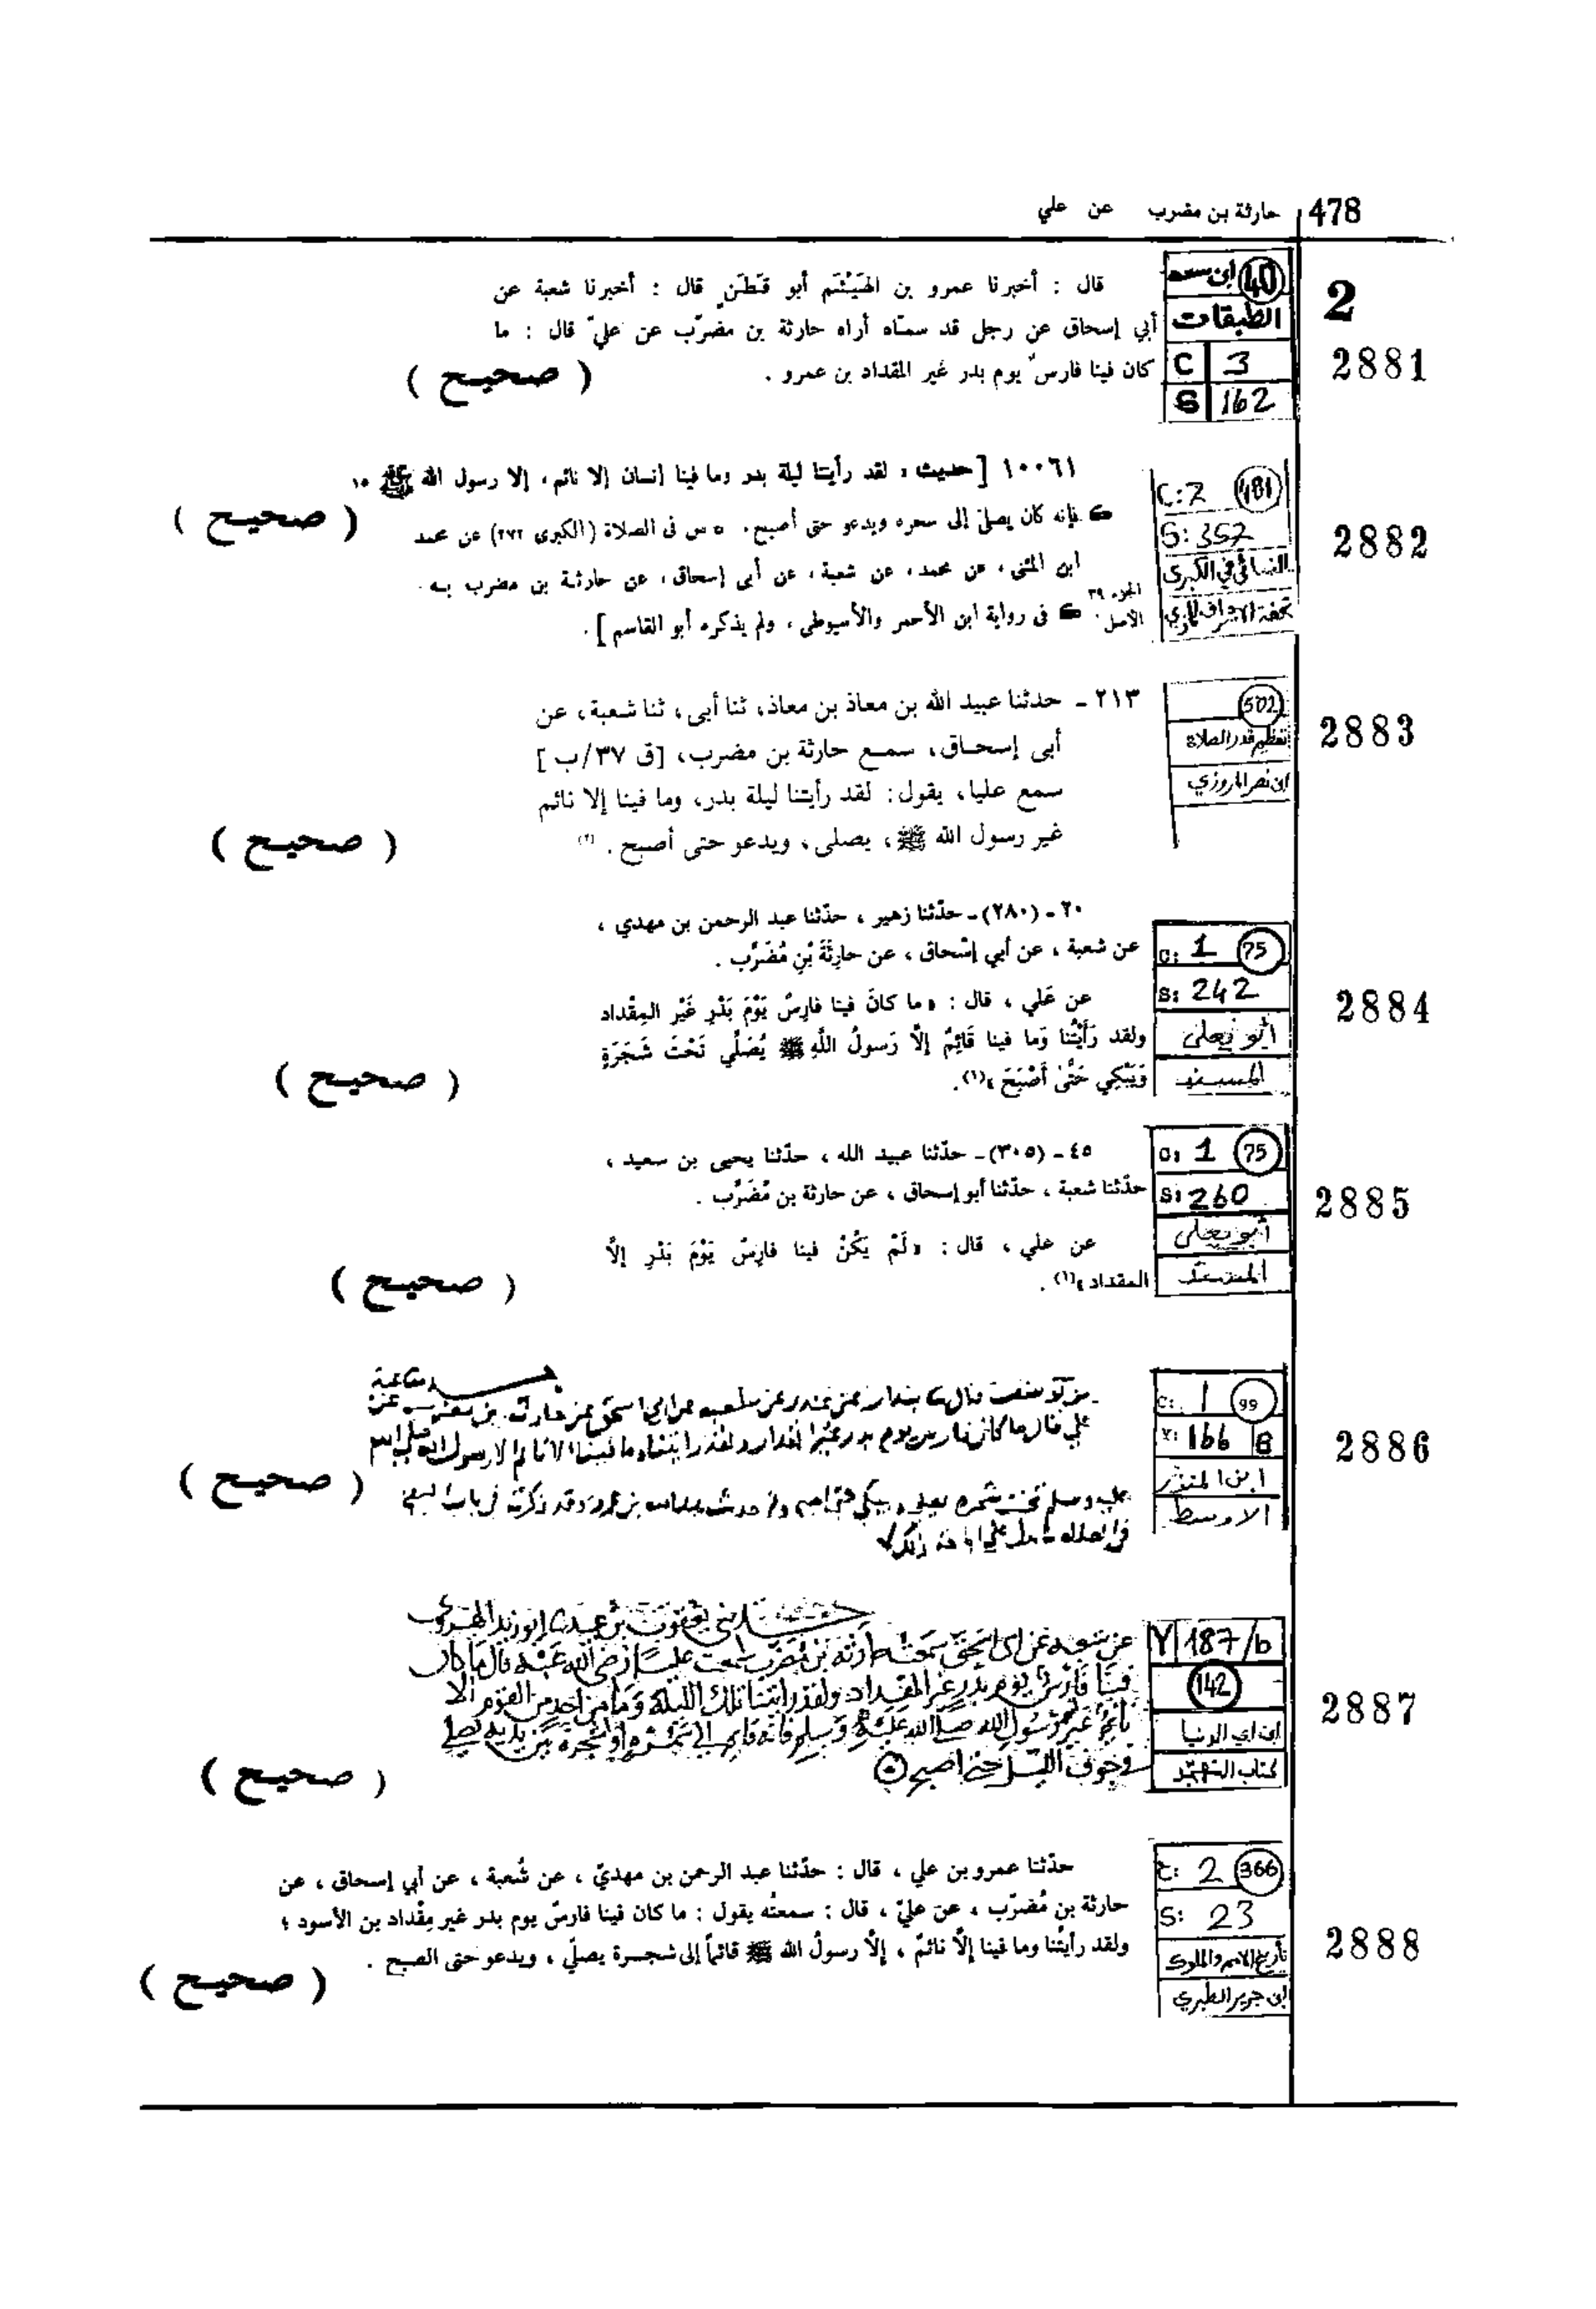 478 حارثة بن مضرب عن علي
2
2881
40 ابن سعد
الطبقات
C 3
S 162
قال : أخبرنا عمرو بن الهَيْثَم أبو قَطَن قال : أخبرنا شعبة عن
أبي إسحاق عن رجل قد سمّاه أراه حارثة بن مضرّب عن عليّ قال : ما
كان فينا فارسٌ يوم بدر غير المقداد بن عمرو .
( صحيح )
2882
C:7 481
S:357
النسائي في الكبرى
تحفة الاشراف للمزي
١٠٠٦١ [حديث : لقد رأيتنا ليلة بدر وما فينا إنسان إلا نائم، إلا رسول الله ﷺ ١٥
ك فإنه كان يصلى إلى سحره ويدعو حتى أصبح. ٥ س فى الصلاة (الكبرى ٢٧٢) عن محمد
ابن المثنى، عن محمد، عن شعبة، عن أبى إسحاق، عن حارثة بن مضرب به.
الجزء ٣٩
الأصل. ك فى رواية ابن الأحمر والأسيوطى، ولم يذكره أبو القاسم].
( صحيح )
2883
502
تعظيم قدر الصلاة
ابن نصر المروزي
٢١٣ - حدثنا عبيد الله بن معاذ بن معاذ، ثنا أبى، ثنا شعبة، عن
أبى إسحـاق، سمـع حارثة بن مضرب، [ق ٣٧/ب]
سمع عليا، يقول: لقد رأيتنا ليلة بدر، وما فينا إلا نائم
غير رسول الله ﷺ، يصلى، ويدعو حتى أصبح. (٢)
( صحيح )
2884
C: 1 75
S: 242
أبو يعلى
المسند
٢٠ - (٢٨٠) - حدّثنا زهير ، حدّثنا عبد الرحمن بن مهدي ،
عن شعبة ، عن أبي إسْحاق ، عن حارِثَةَ بْنِ مُضَرِّب .
عن عَلي ، قال : « ما كانَ فينا فارِسٌ يَوْمَ بَدْرٍ غَيْر المِقْداد
ولقد رَأَيْتُنا وَما فينا قَائِمٌ إلَّا رَسولُ اللَّهِ ﷺ يُصَلِّي تَحْتَ شَجَرَةٍ
وَيَبْكِي حَتَّىٰ أصْبَحَ »(١).
( صحيح )
2885
C: 1 75
S: 260
أبو يعلى
المسند
٤٥ - (٣٠٥) - حدّثنا عبيد الله ، حدّثنا يحيى بن سعيد ،
حدّثنا شعبة ، حدّثنا أبو إسحاق ، عن حارثة بن مُضَرِّب .
عن علي ، قال : « لَمْ يَكُنْ فينا فارِسٌ يَوْمَ بَدْرٍ إلَّا
المقداد »(١) .
( صحيح )
2886
C: 1 99
Y: 166 B
ابن المنذر
الاوسط
علي قال ما كان فارس يوم بدر غير المقداد ولقد رايتنا وما فينا الا نائم الا رسول الله صلى الله
عليه وسلم تحت شجرة يصلي ويبكي حتى اصبح
( صحيح )
2887
Y 187/b
142
ابن ابي الدنيا
كتاب التهجد
عن شعبة عن ابي اسحق سمعت حارثة بن مضرب سمعت عليا رضي الله عنه قال ما كان
فينا فارس يوم بدر غير المقداد ولقد رايتنا تلك الليلة وما من احد من القوم الا
نائم غير رسول الله صلى الله عليه وسلم فانه قام الى شجرة
في جوف الليل حتى اصبح
( صحيح )
2888
C: 2 366
S: 23
تأريخ الامم والملوك
ابن جرير الطبري
حدّثنا عمرو بن علي ، قال : حدّثنا عبد الرحمن بن مهديّ ، عن شُعبة ، عن أبي إسحاق ، عن
حارثة بن مُضرّب ، عن عليّ ، قال : سمعتُه يقول : ما كان فينا فارسٌ يوم بدر غير مِقْداد بن الأسود ؛
ولقد رأيتُنا وما فينا إلَّا نائمٌ ، إلَّا رسولُ الله ﷺ قائماً إلى شجـرة يصلّي ، ويدعو حتى الصبح .
( صحيح )